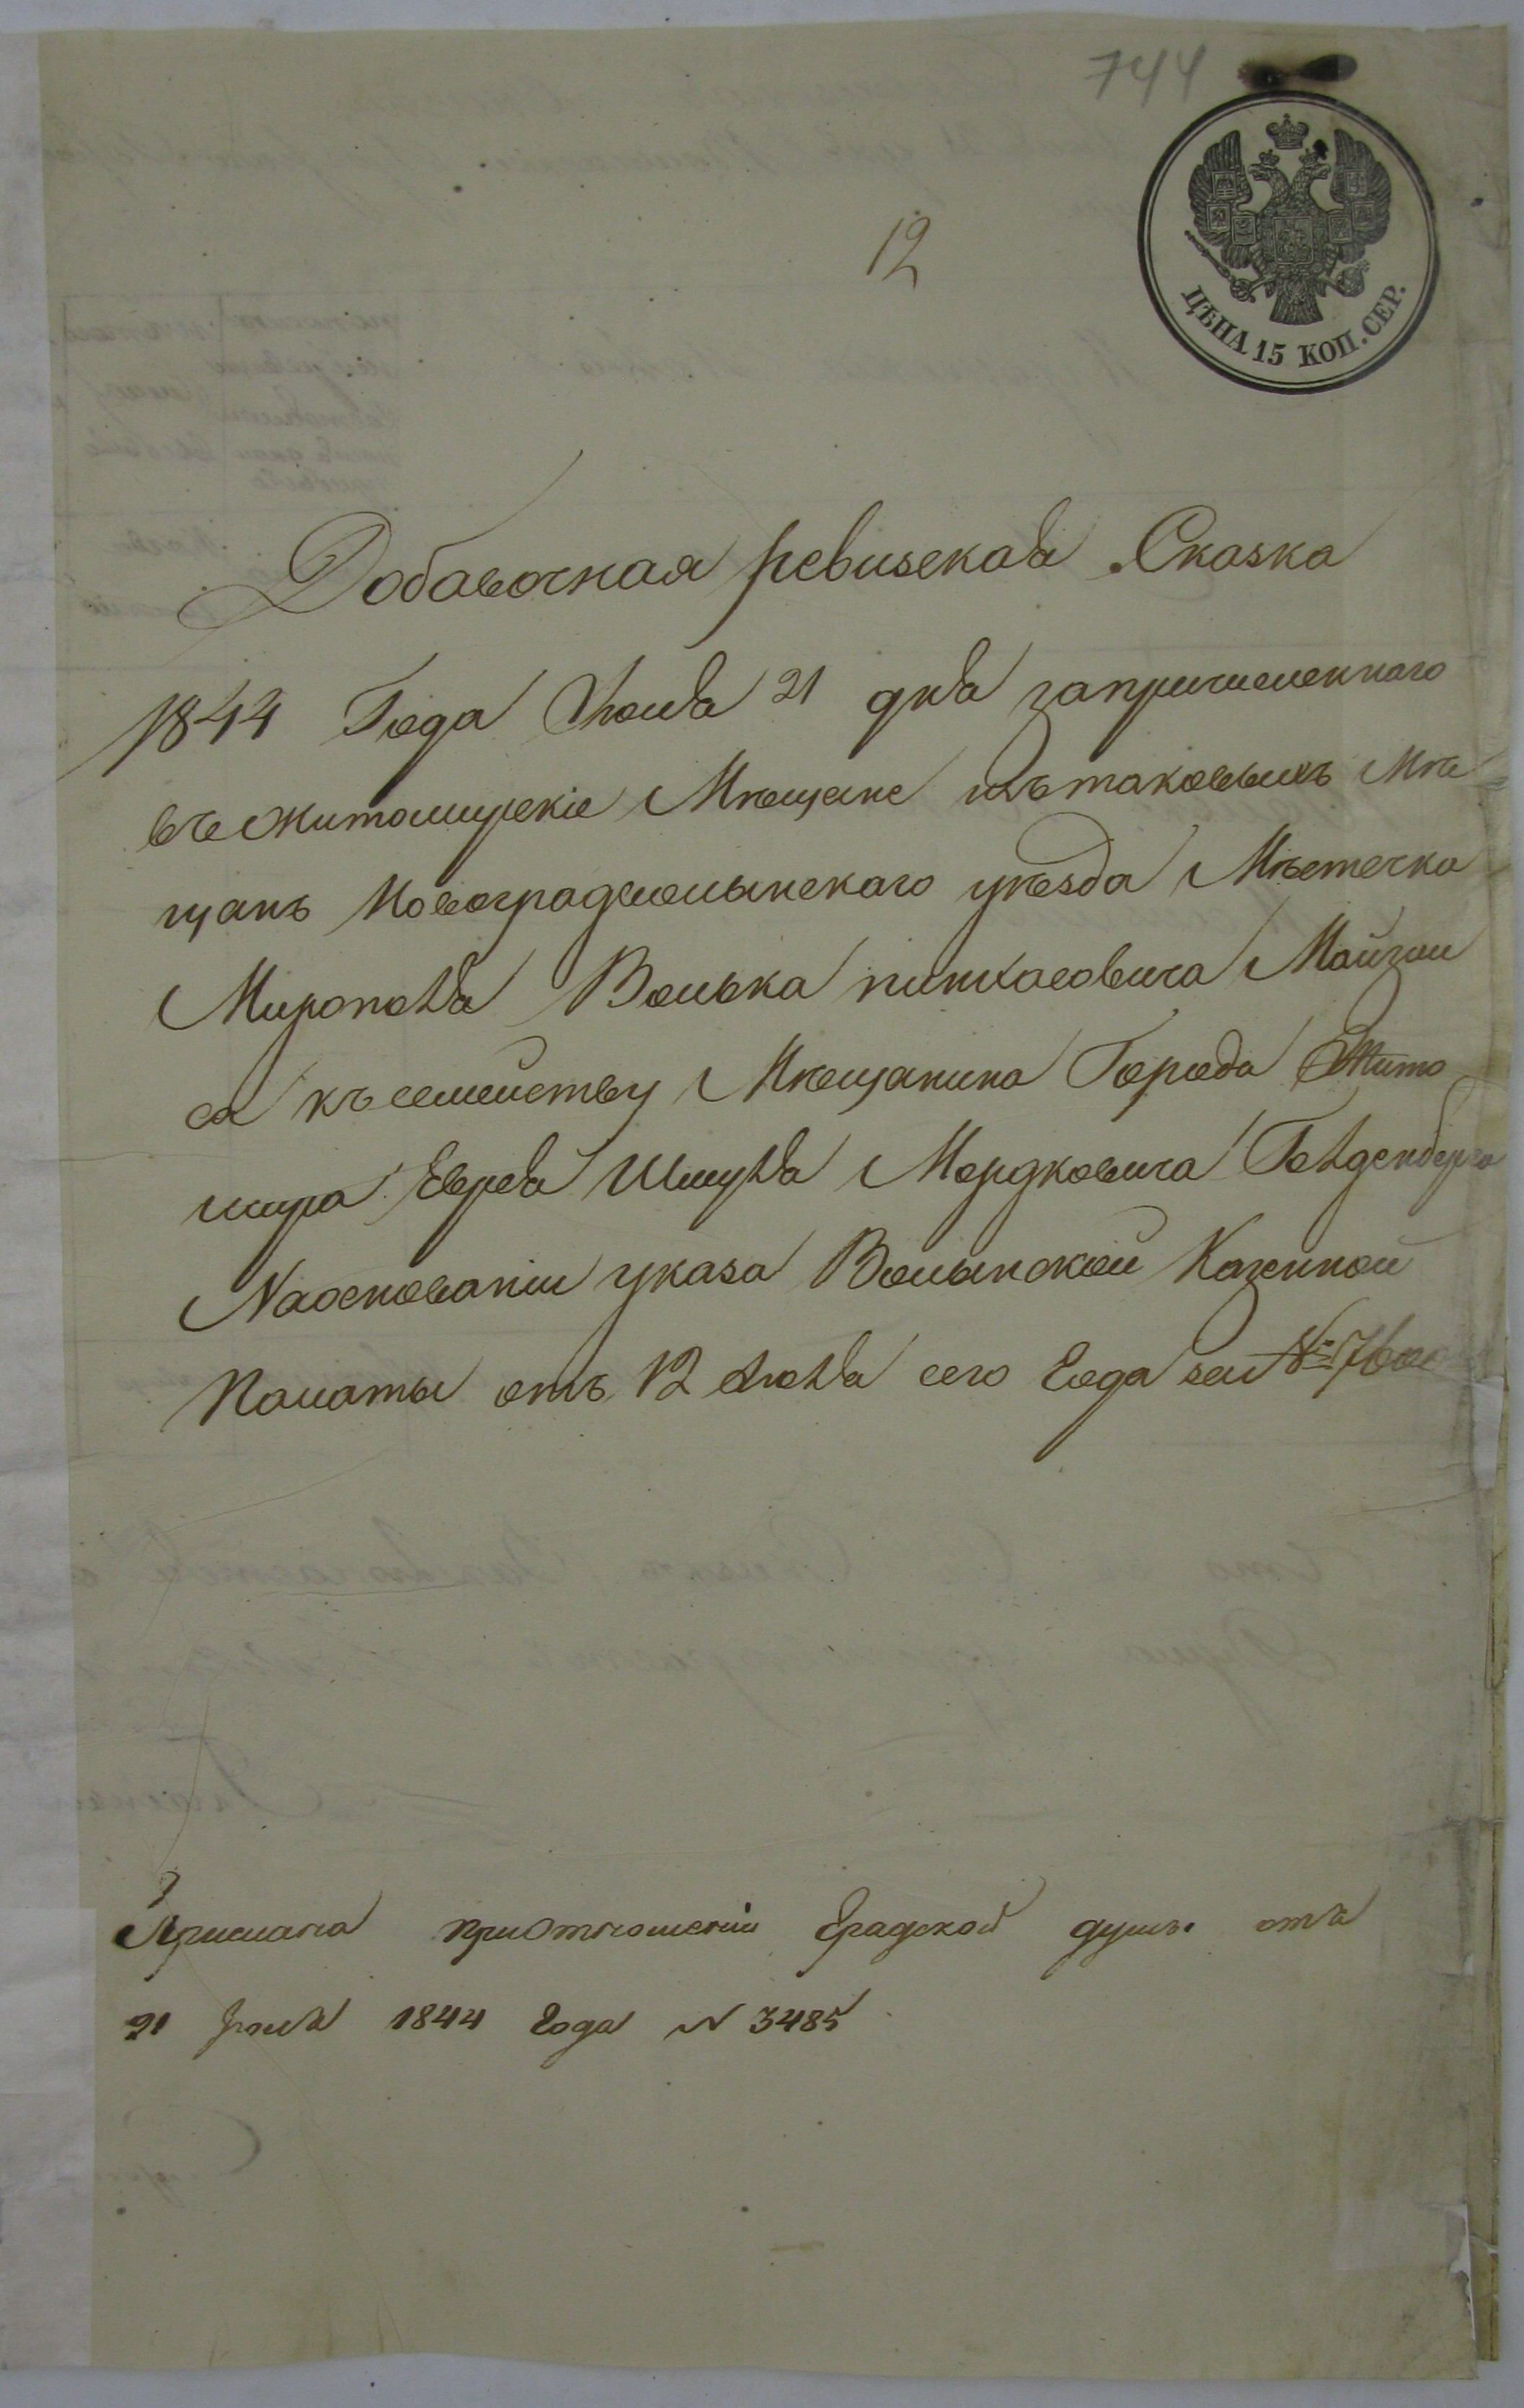 744
12
ЦѢНА 15 КОП. СЕР.
Добавочная ревизская Сказка
1844 Года Июля 21 дня запричисленнаго
въ житомирскіе Мѣщане изъ таковыхъ Мѣ
щанъ Новоградволынскаго уѣзда Мѣстечка
Мирополя Волька пинхасовича Майзли
са къ семейству Мѣщанина Города Жито
мира Еврея Шмуля Мордковича Голденберга
На основаніи указа Волынской Казенной
Палаты отъ 12 Июля сего Года за №
Прислана при отношеніи Градской думы отъ
21 Июля 1844 Года N 3485